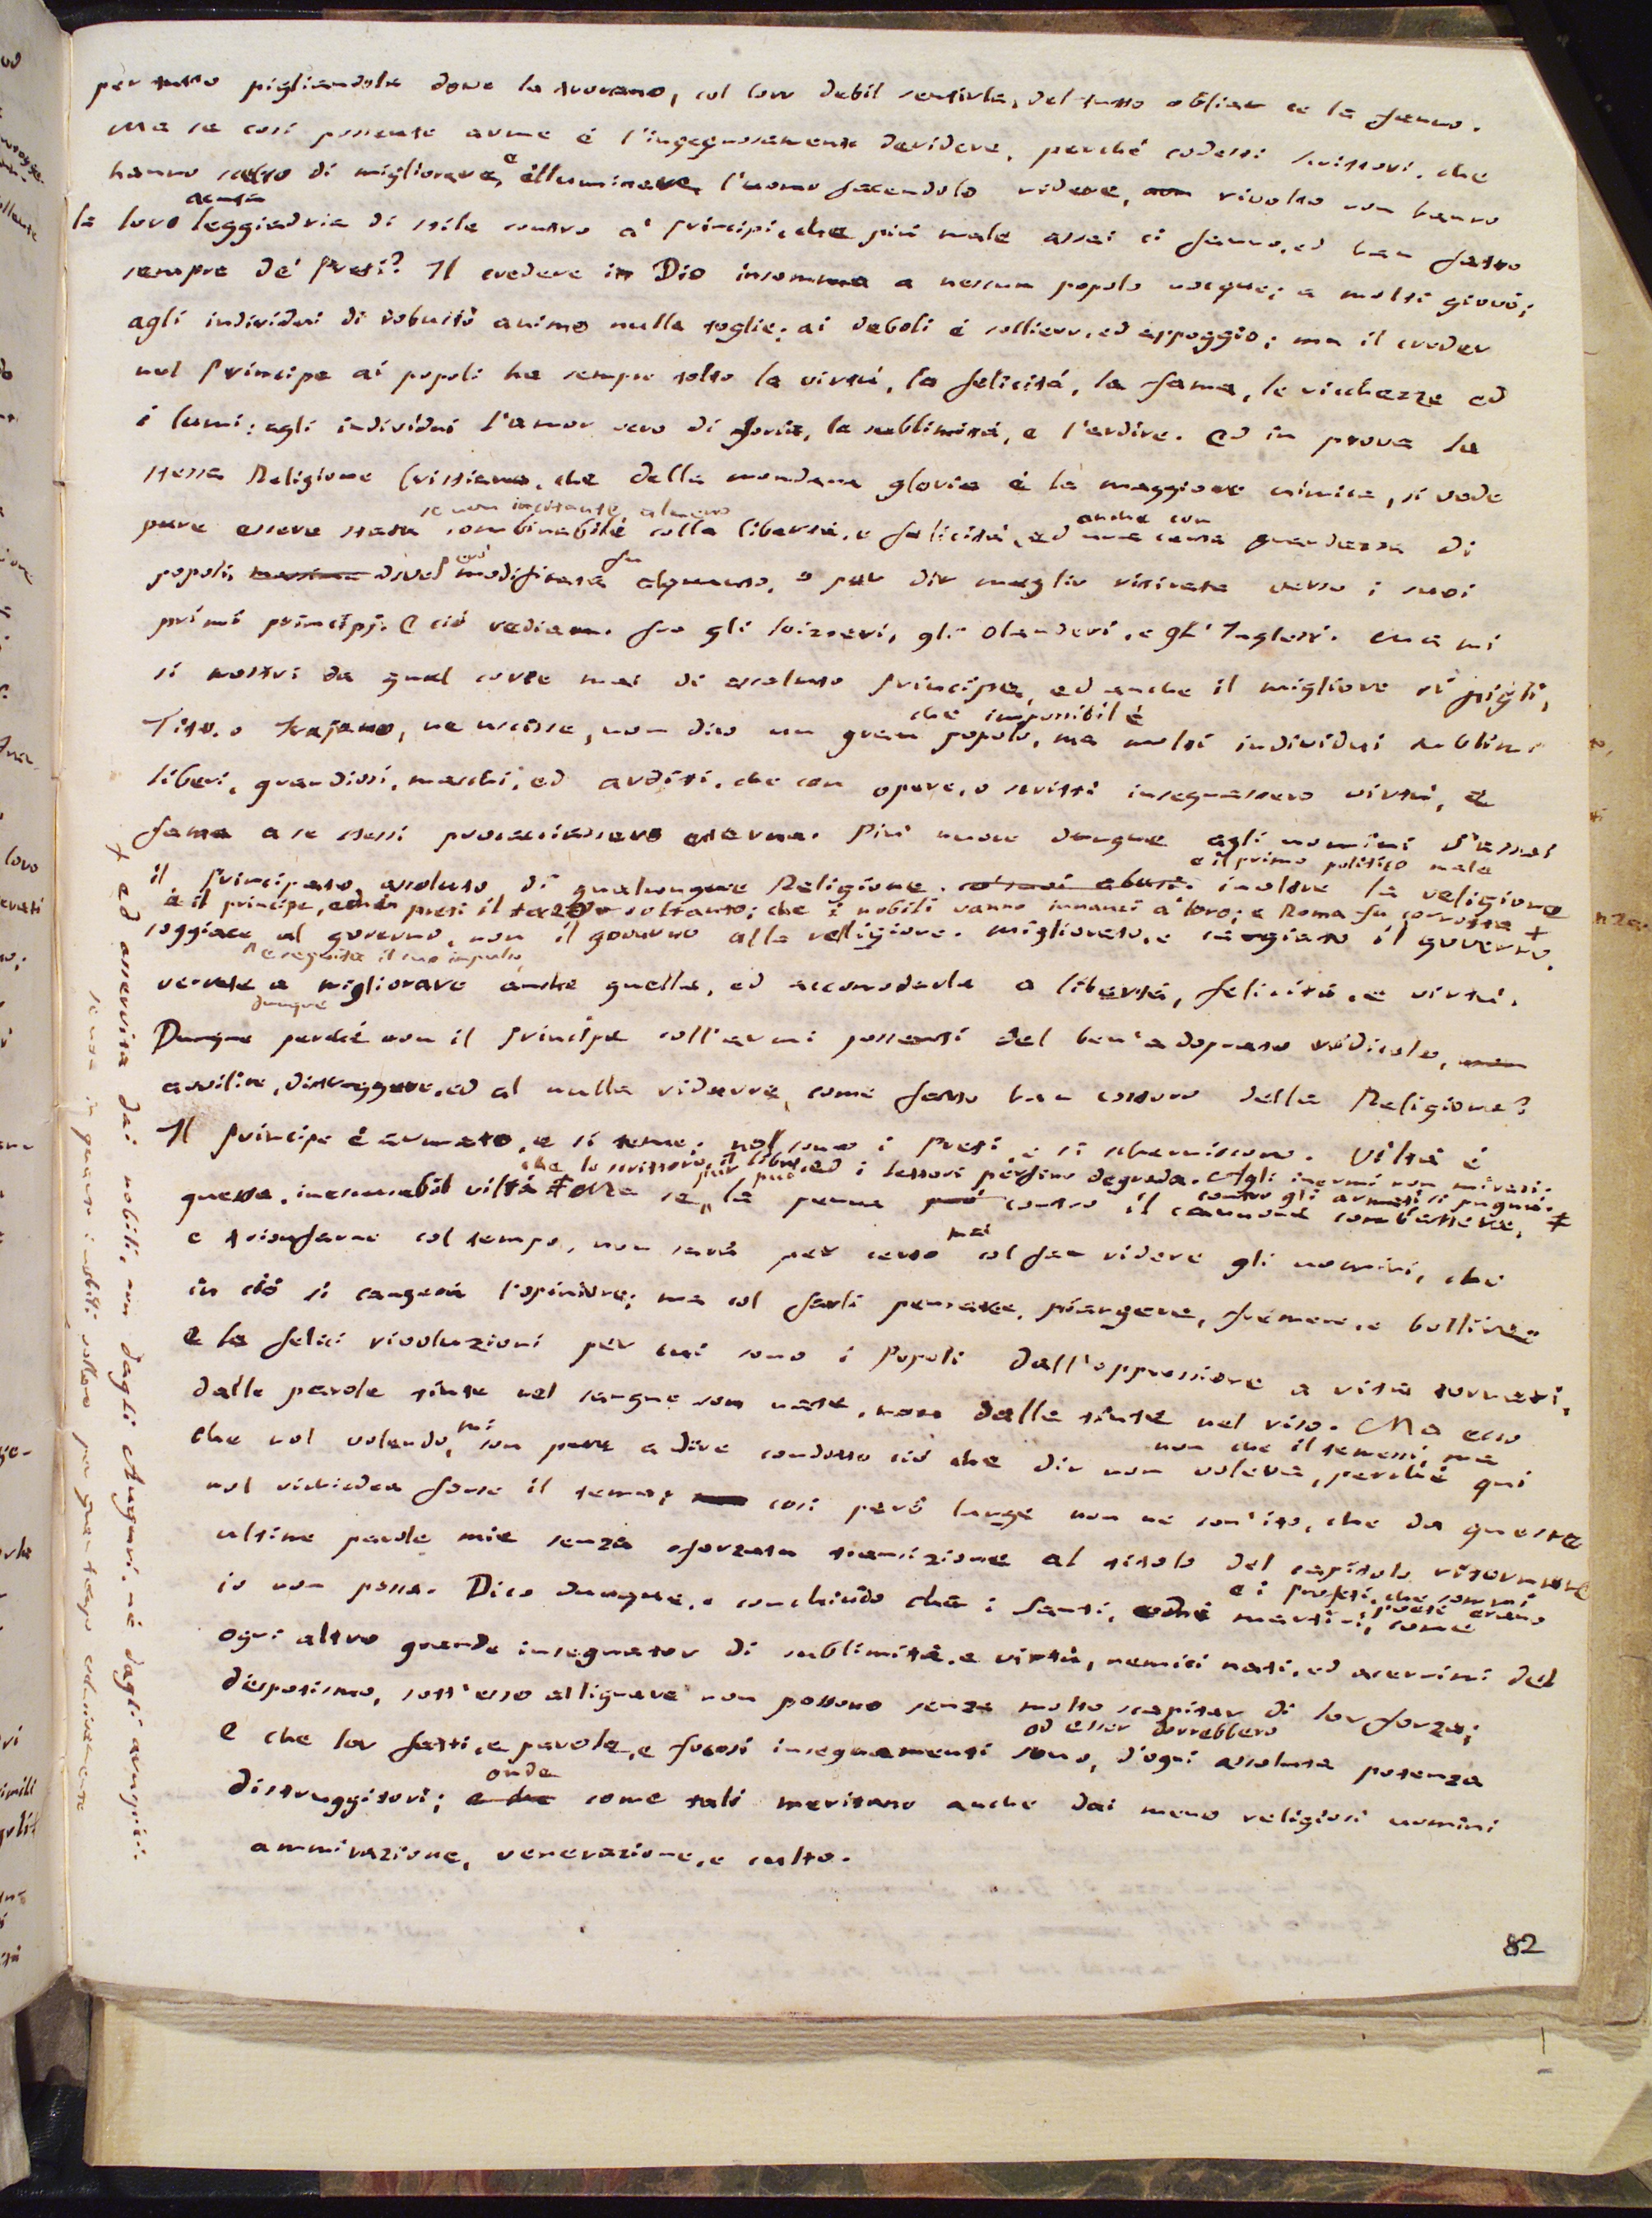 per tutto pigliandola dove la trovano, col loro debil sentirla, del tutto obliar ce la fanno.
Ma se così possente arme è l'ingegnosamente deridere, perché codesti scrittori, che
hanno scelto di migliorare, e illuminare l'uomo facendolo ridere, non rivolto non hanno
acuta
la loro leggiadria di stile contro a' Principi, che più male assai ci fanno, ed han fatto
sempre de' Preti? Il credere in Dio insomma a nessun popolo nocque; a molti giovò;
agli individui di robusto animo nulla toglie; ai deboli è sollievo, ed appoggio; ma il creder
nel Principe ai popoli ha sempre tolto la virtù, la felicità, la fama, le ricchezze ed
i lumi: agli individui l'amor vero di gloria, la sublimità, e l'ardire. Ed in prova la
stessa Religione Cristiana, che della mondana gloria è la maggiore nimica, si vede
se non incitante, almeno anche con
pure essere stata combinabile colla libertà, e felicità, ed una certa grandezza di
popoli, dove modificata fu alquanto, o per dir meglio ritirata verso i suoi
primi principj. E ciò vediam fra gli Svizzeri, gli Olanderi, e gl'Inglesi. Ma mi
si mostri da qual corte mai di assoluto Principe, ed anche il migliore si pigli,
che impossibil è
Tito, o Trajano, ne uscisse, non dico un gran popolo, ma molti individui sublimi
liberi, grandiosi, maschi, ed arditi, che con opere, o scritti insegnassero virtù, e
fama a se stessi procacciassero eterna. Più nuoce dunque agli uomini d'assai
e il primo politico male
il Principato assoluto di qualunque Religione. inoltre la religione
è il principe, preti il terzo soltanto; che i nobili vanno innanzi a' loro; e Roma fu corrotta +
soggiace al governo, non il governo alla religione. Migliorato, e cangiato il governo,
e seguita il suo impulso,
verrete a migliorare anche quella, ed accomodarla a libertà, felicità, e virtù.
dunque
Dunque perché non il Principe coll'armi possenti del ben'adoprato ridicolo, non
avvilire, distruggere, ed al nulla ridurre, come fatto han costoro della Religione?
Il Principe è armato, e si teme; nol sono i Preti, e si scherniscono. Viltà è
che lo scrittore, il libro, ed i lettori persino degrada. Agli inermi non mirasi.
contro gli armati si pugni.
questa, inescusabil viltà ‡ Ma se la penna può contro il cannone combattere, ‡
mai
e trionfarne col tempo, non sarà per certo col far ridere gli uomini, che
in ciò si cangerà l'opinione; ma col farli pensare, piangere, fremere, e bollire
e le felici rivoluzioni per cui sono i Popoli dall'oppressione a vita tornati,
dalle parole tinte nel sangue son nate, non dalle tinte nel riso. Ma ecco
non che il temessi, ma
che nol volendo, mi son pure a dire condotto ciò che dir non voleva, perché qui
nol richiedea forse il tema; così però lungi non ne son'ito, che da queste
ultime parole mie senza sforzata transizione al titolo del capitolo ritornare
e i profeti, che sommi poeti erano
io non possa. Dico dunque, e conchiudo che i Santi, ed i martiri, come
ogni altro grande insegnator di sublimità, e virtù, nemici nati, ed acerrimi del
dispotismo, sott'esso allignare non possono senza molto scapitar di lor forza;
od esser dovrebbero
e che lor fatti, e parole, e focosi insegnamenti sono, d'ogni assoluta potenza
onde
distruggitori; e che come tali meritano anche dai meno religiosi uomini
ammirazione, venerazione, e culto.
82
+ ed asservita dai nobili, non dagli Auguri, nè dagli auspicii.
se non in quanto i nobili vollero per gran tempo esclusivamente